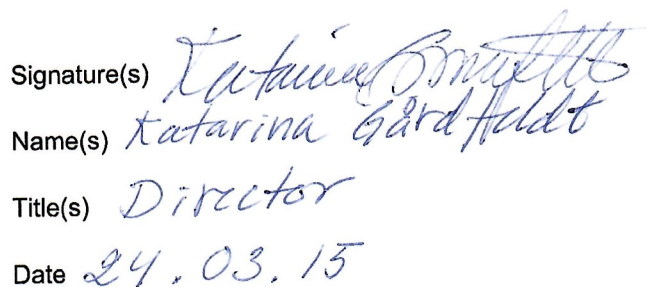 Signature(s) Katarina
Name(s) Katarina Gårdfeldt
Title(s) Director
Date 24.03.15